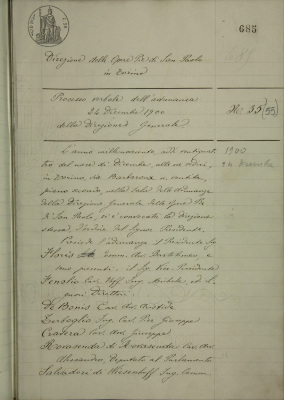 685
Direzione delle Opere Pie di San Paolo
in Torino
Processo verbale dell'adunanza
24 Dicembre 1900
della Direzione Generale.
No. 35 (35)
L'anno millenovecento, addì ventiquattro
del mese di Dicembre, alle ore
in Torino, via Barbaroux
piano secondo, nella sala delle adunanze
della Direzione Generale delle Opere Pie
di San Paolo, si è convocata la Direzione
stessa d'ordine del Signor Presidente.
1900
24 Dicembre
Presiede l'adunanza il Presidente
Floris comm. Avv. Bartolomeo e
sono presenti: il Sig. Vice Presidente
Fenolio Cav. Uff. Ing. ed i
Signori Direttori
De Bonis Cav. Avv.
Ing. Cav. Giuseppe
Cravera Cav. Avv. Giuseppe
Rovasenda di Rovasenda Cav. Avv.
Alessandro, Deputato al Parlamento
Salvadori di Wiesenhoff Ing.